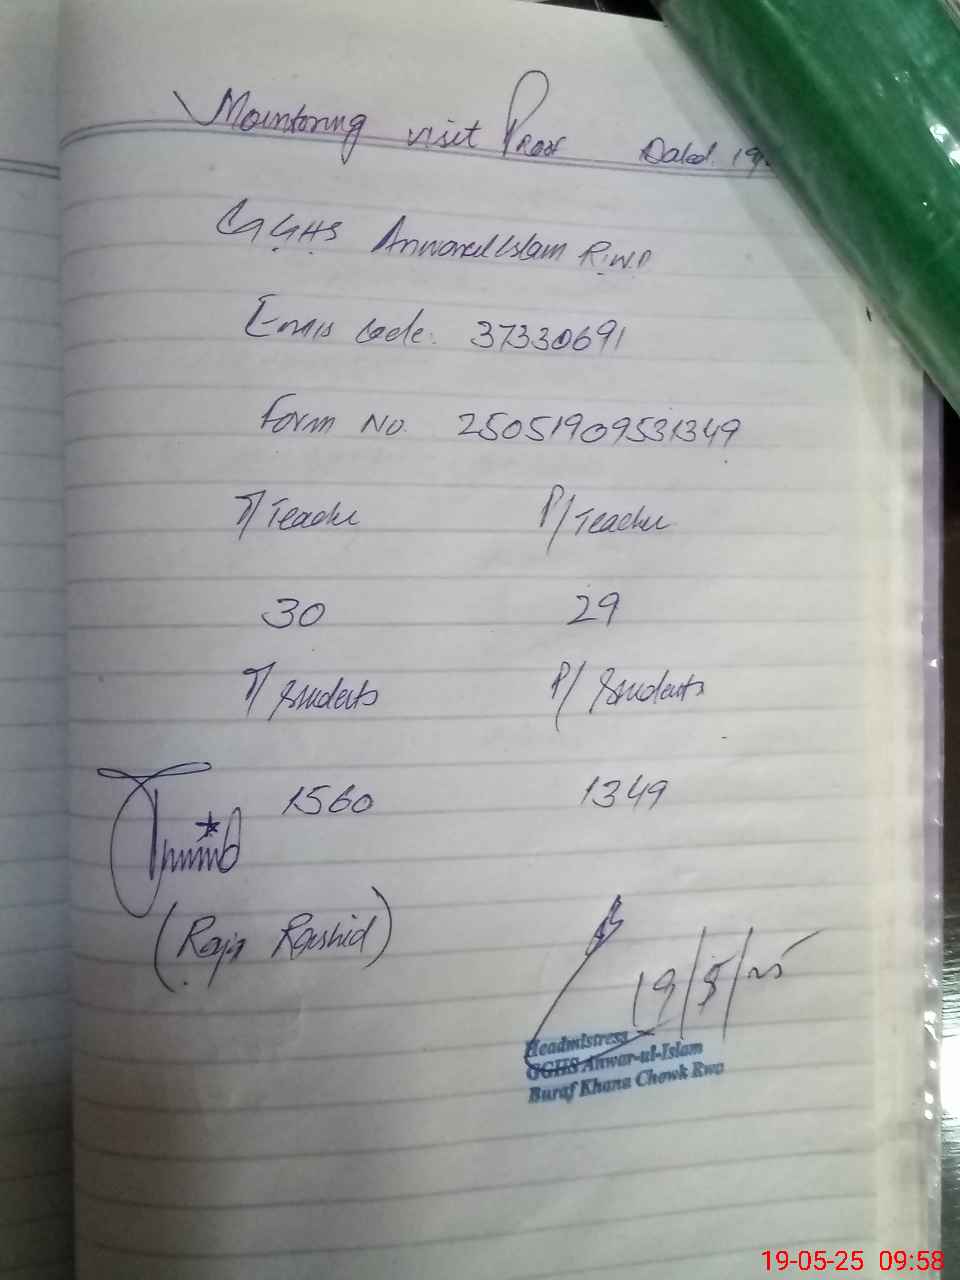 Mointoring visit Proof Dated. 19
GGHS Anwarul Islam R.W.P
Emis Code. 37330691
Form No. 25051909531349
T/Teacher P/Teacher
30 29
T/Students P/Students
1560 1349
(Raja Rashid)
19/5/25
Headmistress
GGHS Anwar-ul-Islam
Buraf Khana Chowk Rwp
19-05-25 09:58